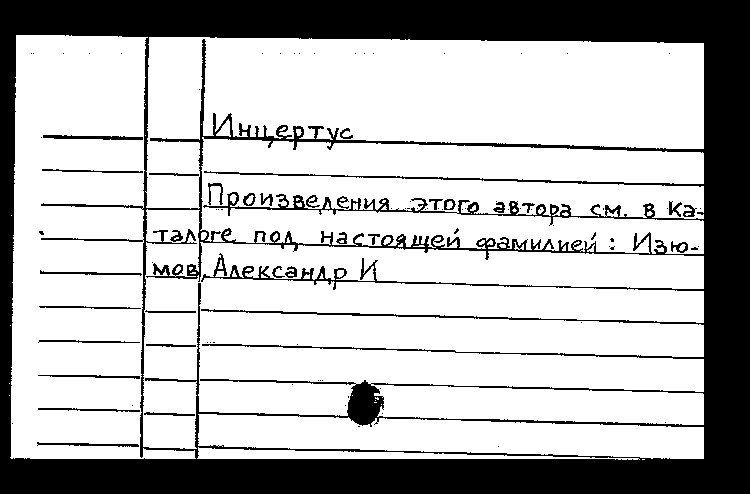 Инцертус
Произведения этого автора см. в Ка-
талоге под настоящей фамилией: Изю-
мов, Александр И